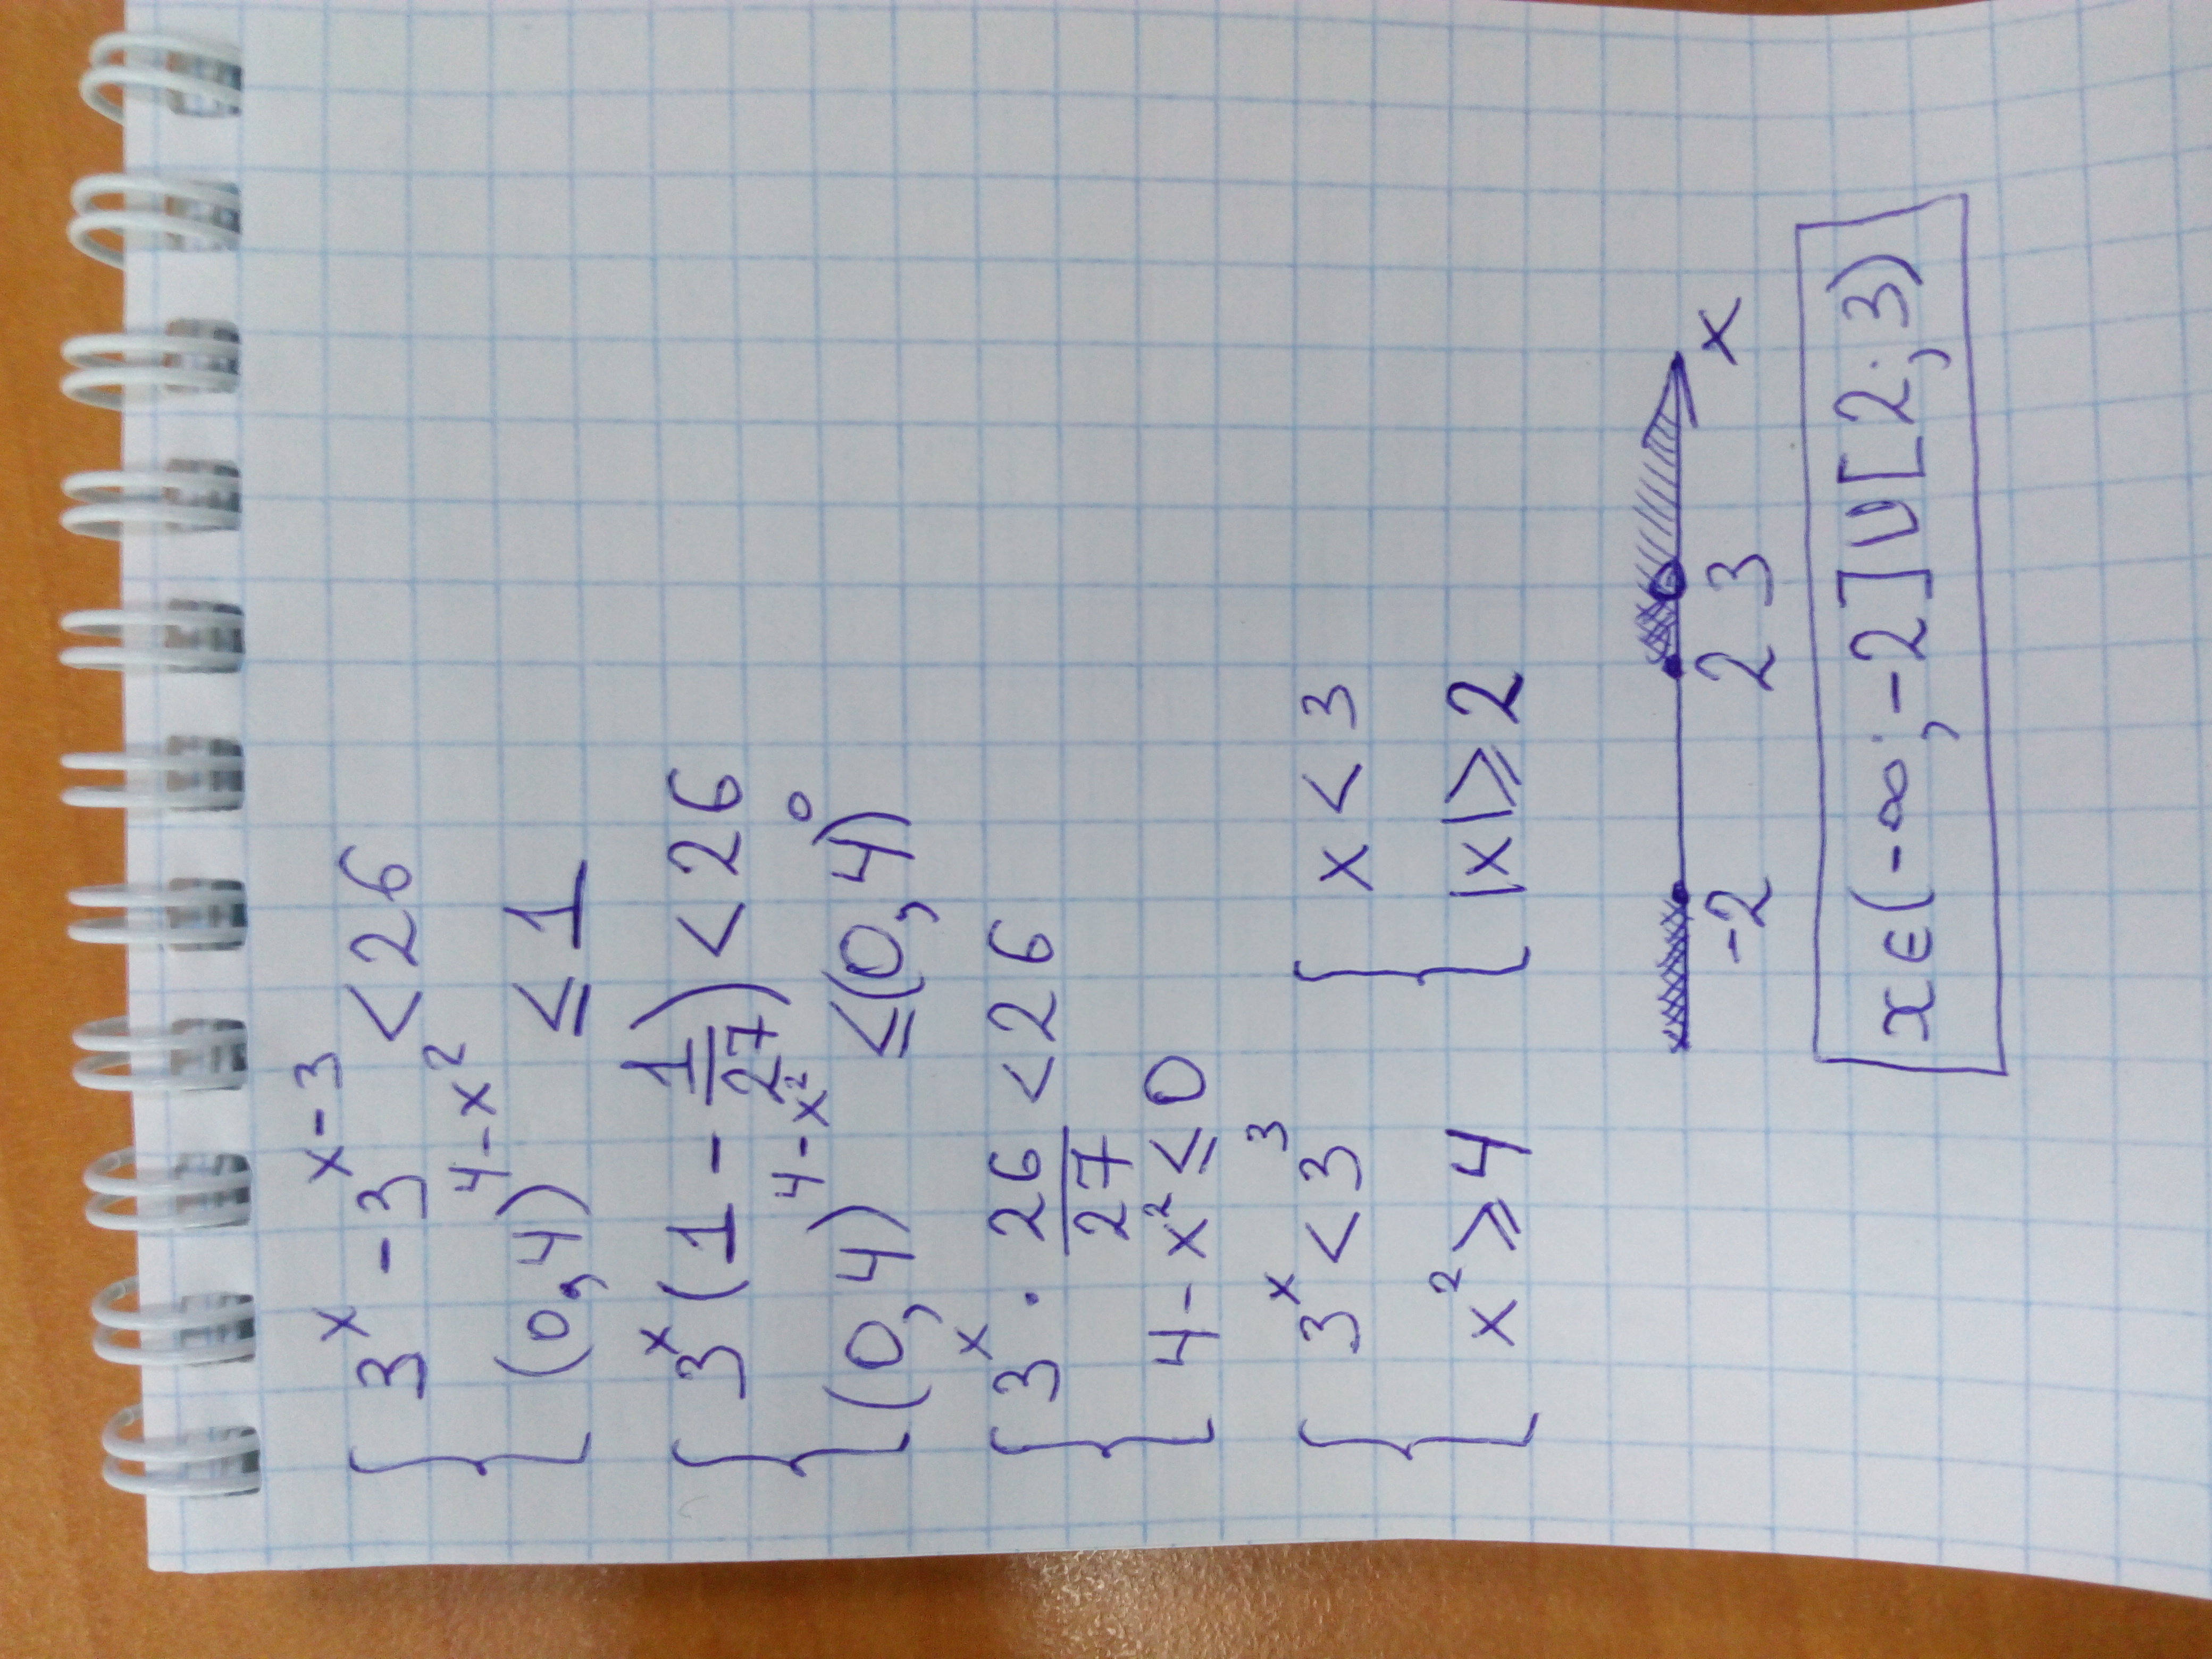 { 3^x - 3^(x-3) < 26
(0,4)^(4-x²) ≤ 1
{ 3^x (1 - 1/27) < 26
(0,4)^(4-x²) ≤ (0,4)^0
{ 3^x · 26/27 < 26
4 - x² ≤ 0
{ 3^x < 3^3 { x < 3
x² ⩾ 4 |x| ⩾ 2
-2 2 3 x
x ∈ (-∞; -2] ∪ [2; 3)